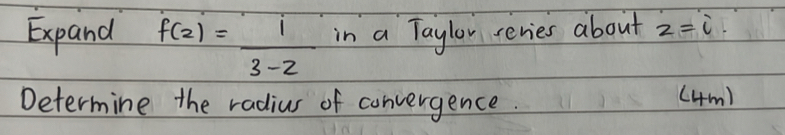 Expand f(z) = i/(3-z) in a Taylor series about z = i.
Determine the radius of convergence. (4m)